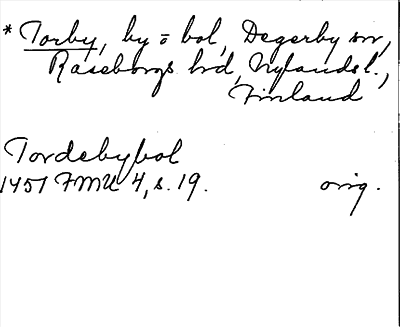 * Torby, by o bol, Degerby sn,
Raseborgs hrd, Nylands l.,
Finland
Tordebybol
1451 FMU 4, s. 19. orig.